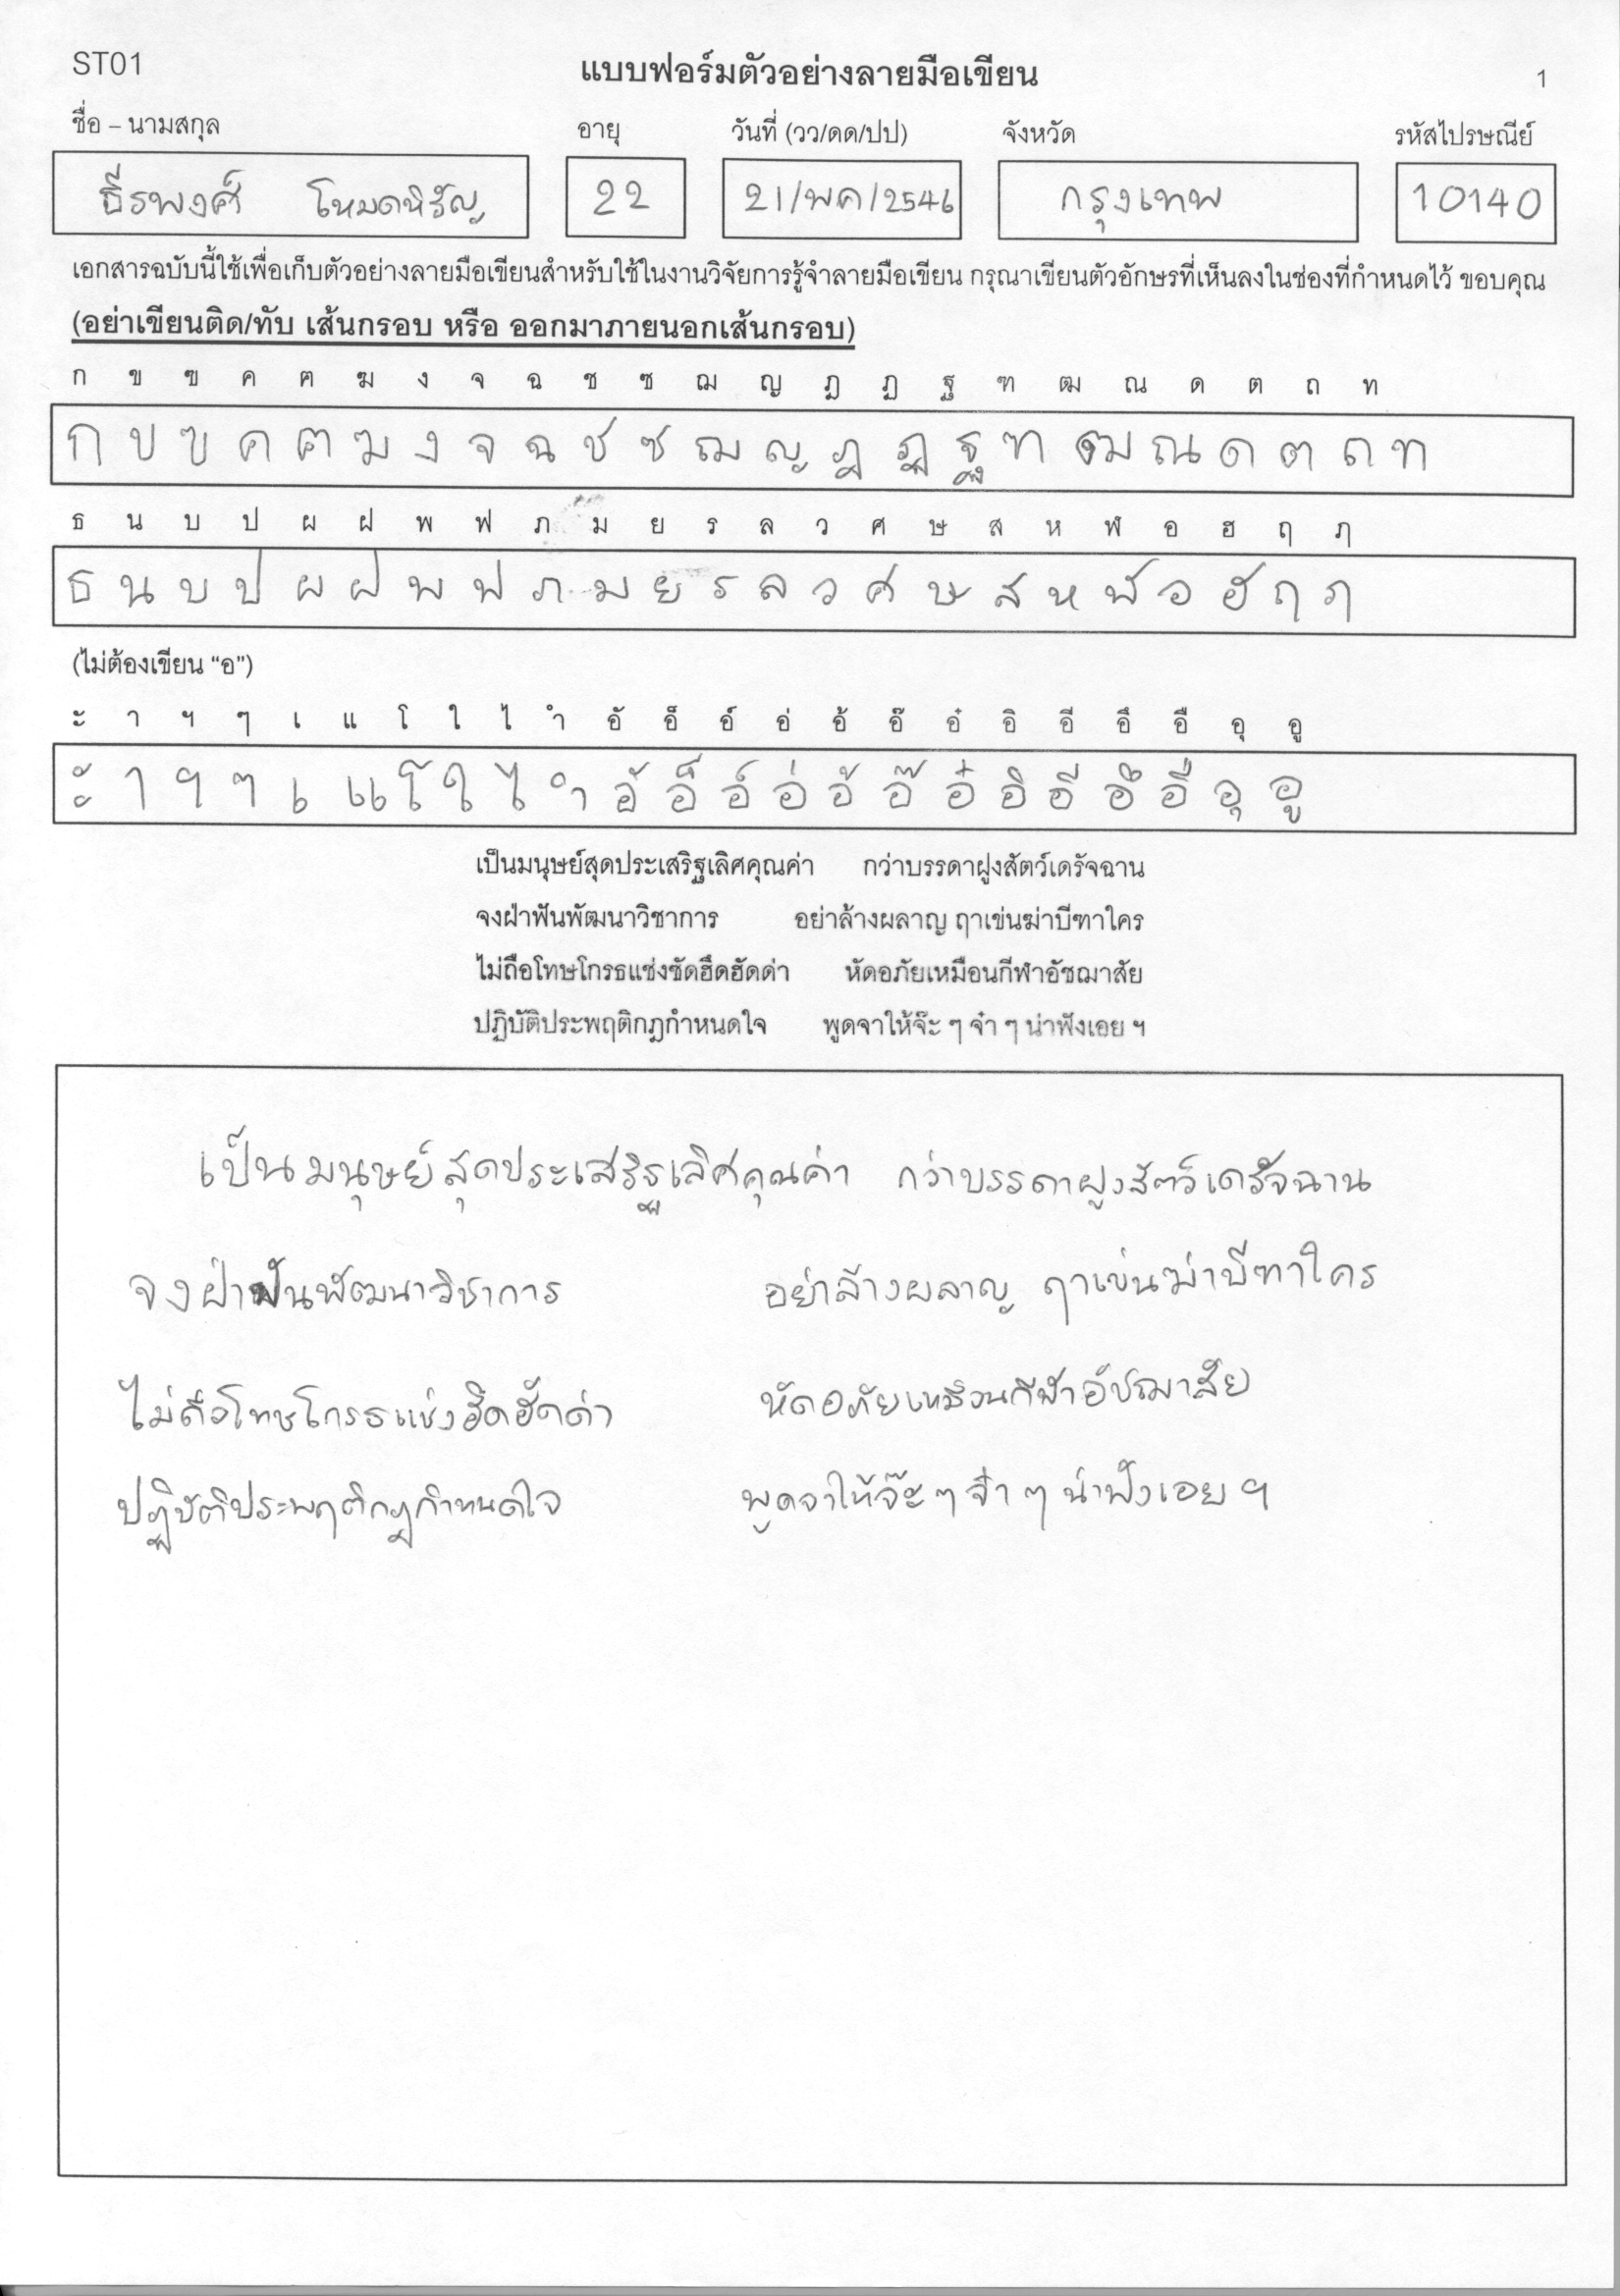 ST01 แบบฟอร์มตัวอย่างลายมือเขียน 1
ชื่อ – นามสกุล อายุ วันที่ (วว/ดด/ปป) จังหวัด รหัสไปรษณีย์
ธีรพงศ์ โหมดหิรัญ 22 21/พค/2546 กรุงเทพ 10140
เอกสารฉบับนี้ใช้เพื่อเก็บตัวอย่างลายมือเขียนสำหรับใช้ในงานวิจัยการรู้จำลายมือเขียน กรุณาเขียนตัวอักษรที่เห็นลงในช่องที่กำหนดไว้ ขอบคุณ
(อย่าเขียนติด/ทับ เส้นกรอบ หรือ ออกมาภายนอกเส้นกรอบ)
ก ข ฃ ค ฅ ฆ ง จ ฉ ช ซ ฌ ญ ฎ ฏ ฐ ฑ ฒ ณ ด ต ถ ท
ก ข ฃ ค ฅ ฆ ง จ ฉ ช ซ ฌ ญ ฎ ฏ ฐ ฑ ฒ ณ ด ต ถ ท
ธ น บ ป ผ ฝ พ ฟ ภ ม ย ร ล ว ศ ษ ส ห ฬ อ ฮ ฤ ฦ
ธ น บ ป ผ ฝ พ ฟ ภ ม ย ร ล ว ศ ษ ส ห ฬ อ ฮ ฤ ฦ
(ไม่ต้องเขียน “อ”)
ะ า ฯ ๆ เ แ โ ใ ไ ำ อั อ็ อ์ อ่ อ้ อ๊ อ๋ อิ อี อึ อื อุ อู
ะ า ฯ ๆ เ แ โ ใ ไ ำ อั อ็ อ์ อ่ อ้ อ๊ อ๋ อิ อี อึ อื อุ อู
เป็นมนุษย์สุดประเสริฐเลิศคุณค่า กว่าบรรดาฝูงสัตว์เดรัจฉาน
จงฝ่าฟันพัฒนาวิชาการ อย่าล้างผลาญ ฤาเข่นฆ่าบีฑาใคร
ไม่ถือโทษโกรธแช่งซัดฮึดฮัดด่า หัดอภัยเหมือนกีฬาอัชฌาสัย
ปฏิบัติประพฤติกฎกำหนดใจ พูดจาให้จ๊ะ ๆ จ๋า ๆ น่าฟังเอย ฯ
เป็นมนุษย์สุดประเสริฐเลิศคุณค่า กว่าบรรดาฝูงสัตว์เดรัจฉาน
จงฝ่าฟันพัฒนาวิชาการ อย่าล้างผลาญ ฤาเข่นฆ่าบีฑาใคร
ไม่ถือโทษโกรธแช่งฮึดฮัดด่า หัดอภัยเหมือนกีฬาอัชฌาสัย
ปฏิบัติประพฤติกฎกำหนดใจ พูดจาให้จ๊ะ ๆ จ๋า ๆ น่าฟังเอย ฯ